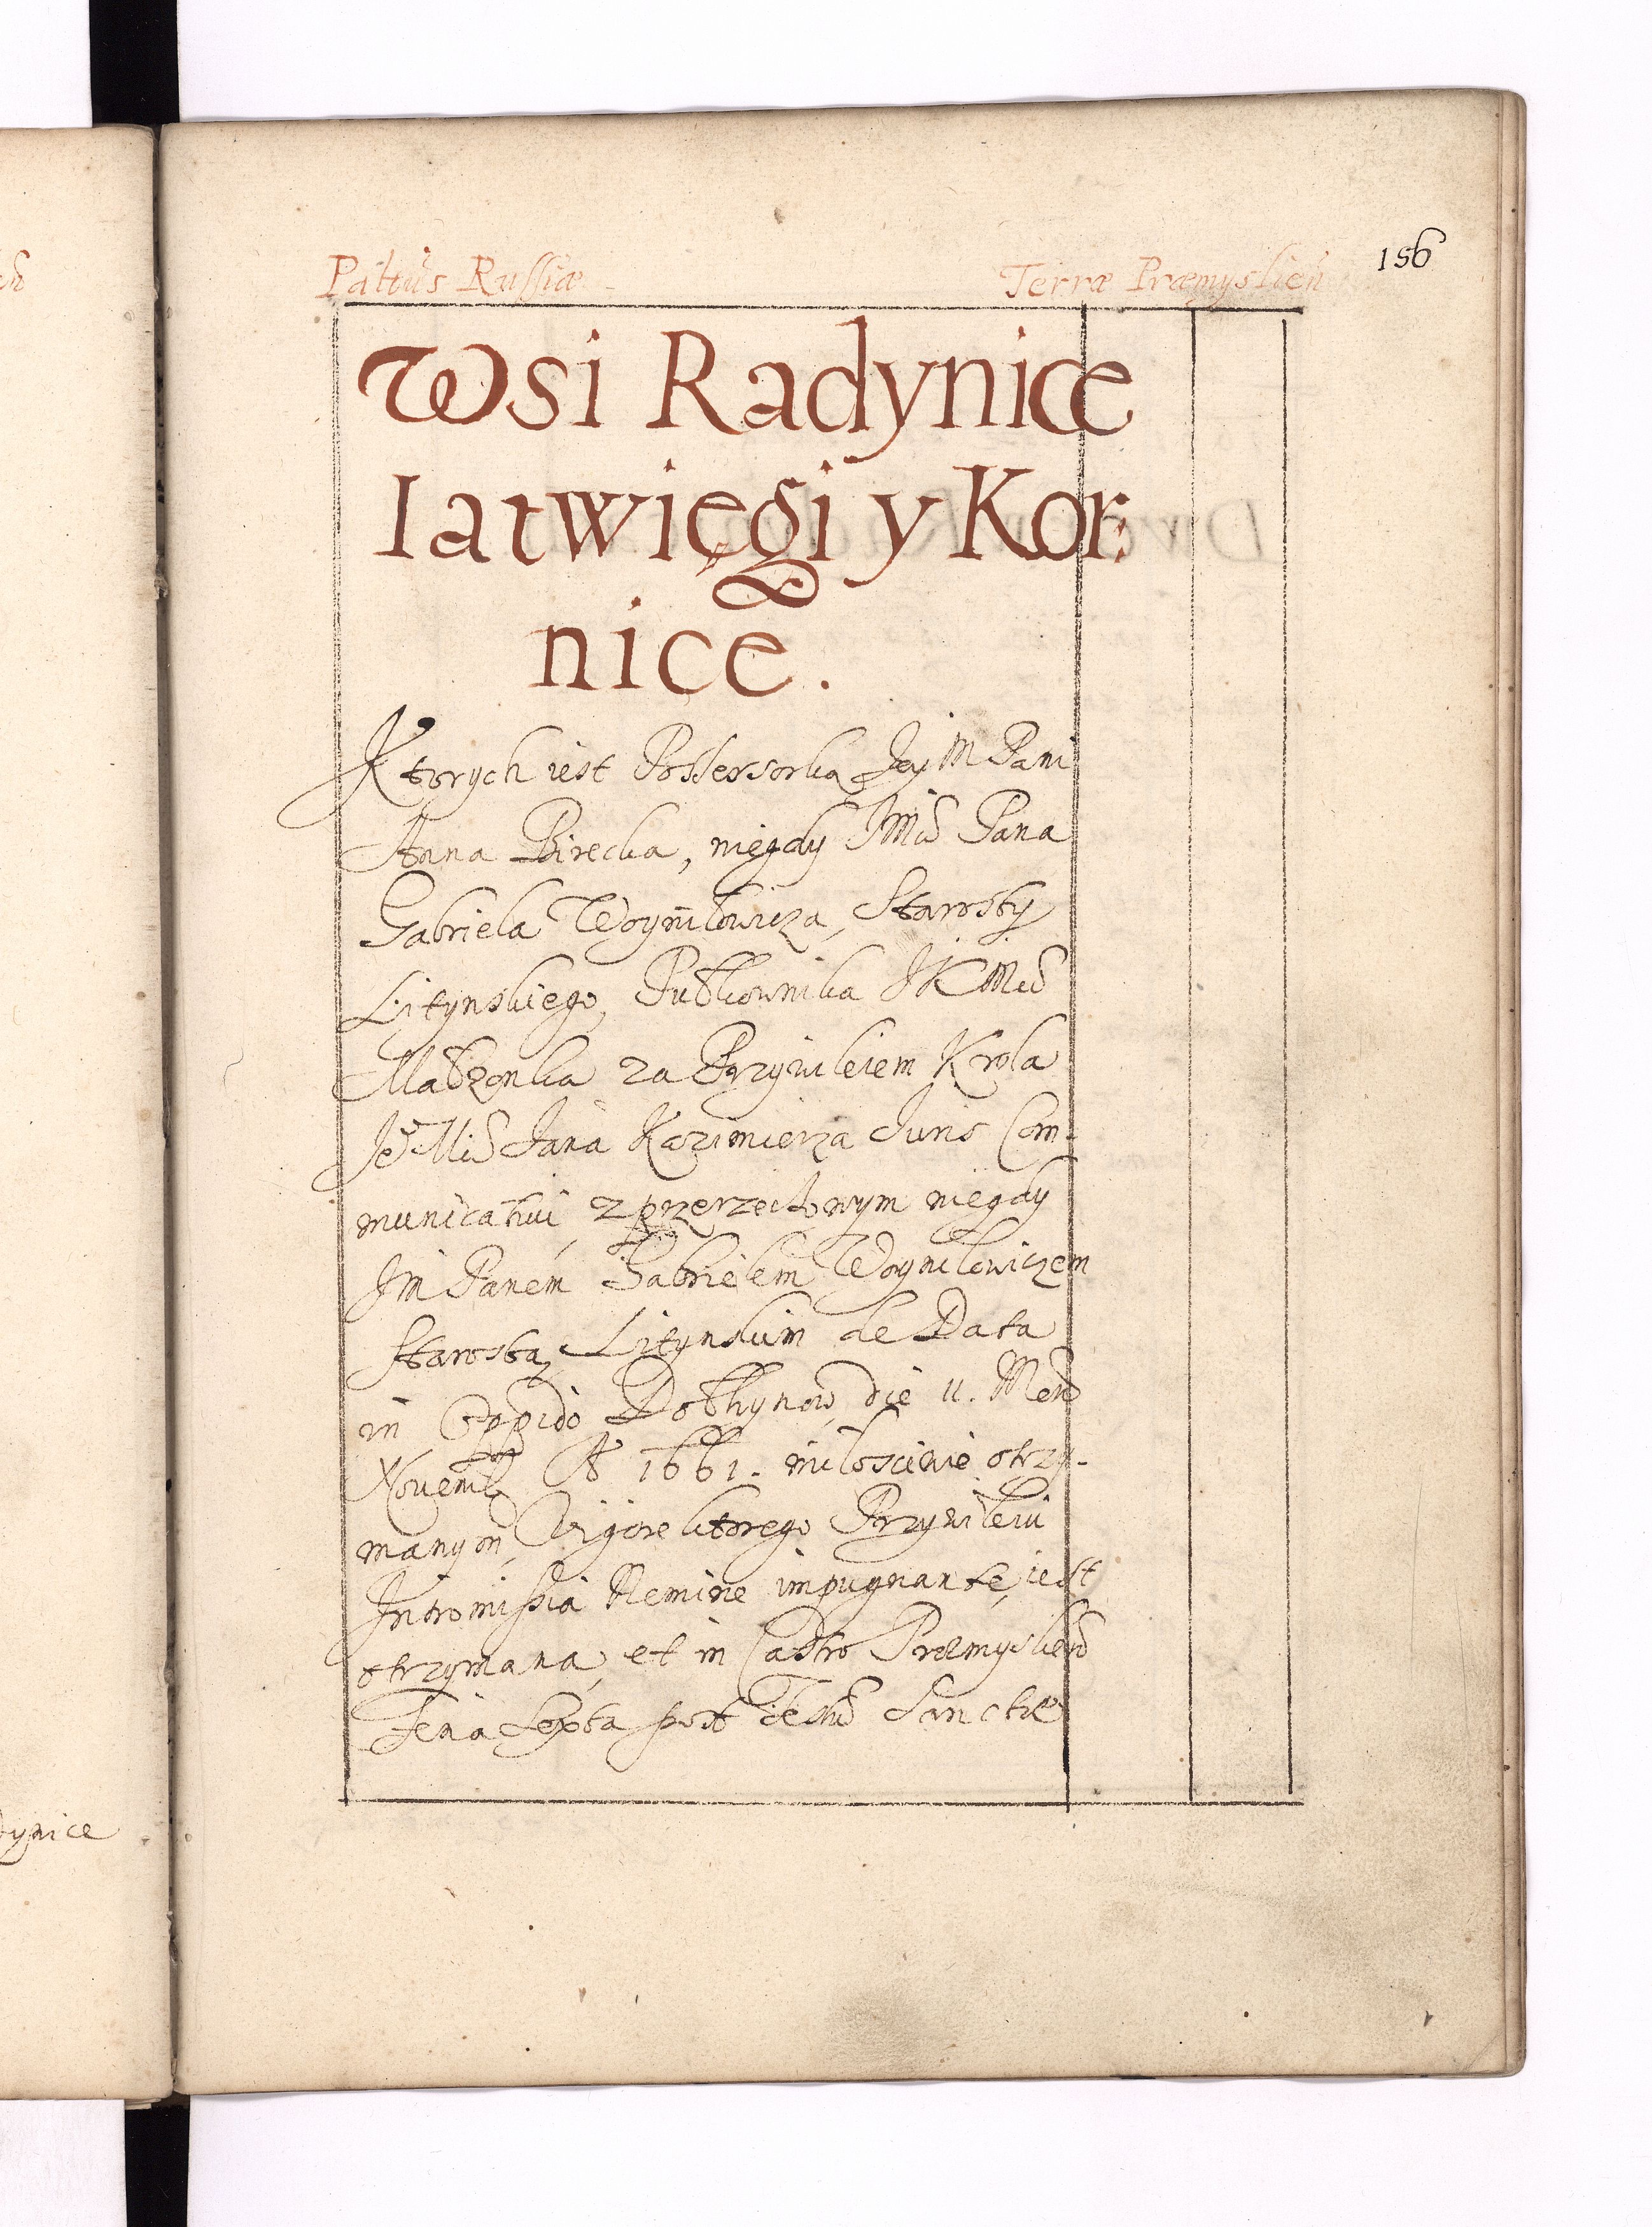 Pałtũs Russiæ
Terræ Præmyslieñ
156
Wsi Radynice
Iatwięgi y Kor:
nice.
Ktorych iest Possessorka Jey M Pani
Anna Birecka, niegdy JMći Pana
Gabriela Woyniłowicza, Starosty
Lityńskiego, Pułkownika JKMći
Małżonka za Przywileiem Krola
Je° Mći Jana Kazimierza Iuris Com-
municativi, z przerzeczonym niegdy
Jm Panem Gabrielem Woyniłowiczem
Starostą Lityńskim de Data
in Oppido Dołhynow die 11. Mens
Novemb A° 1661. miłosciwie otrzy-
manym, Vigore ktorego Przywileiu
Intromissia Nemine impugnante, iest
otrzymana, et in Castro Præmyslień
Feria Sexta post Festũ Sanctæ
dynice